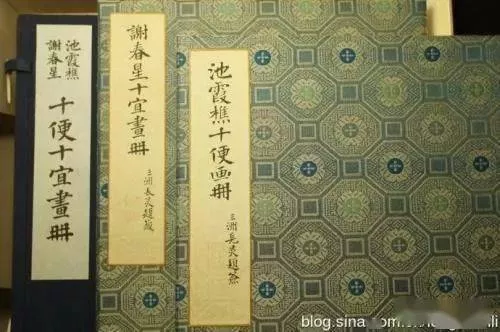 池霞樵
謝春星
十便十宜畫冊
謝春星十宜畫冊
三洲長炗題
池霞樵十便画冊
三洲長炗題簽
blog.sina.com